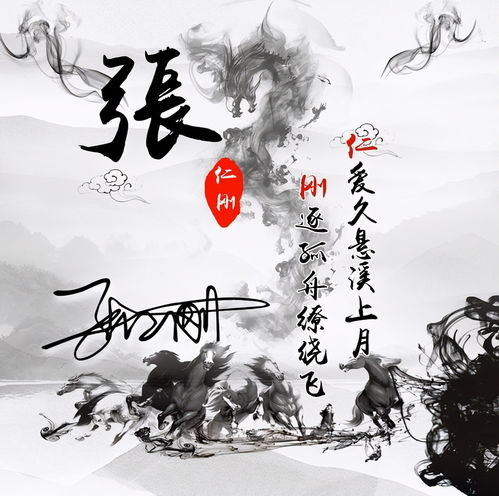 張
仁
刚
仁爱久悬溪上月
刚逐孤舟缭绕飞
张仁刚